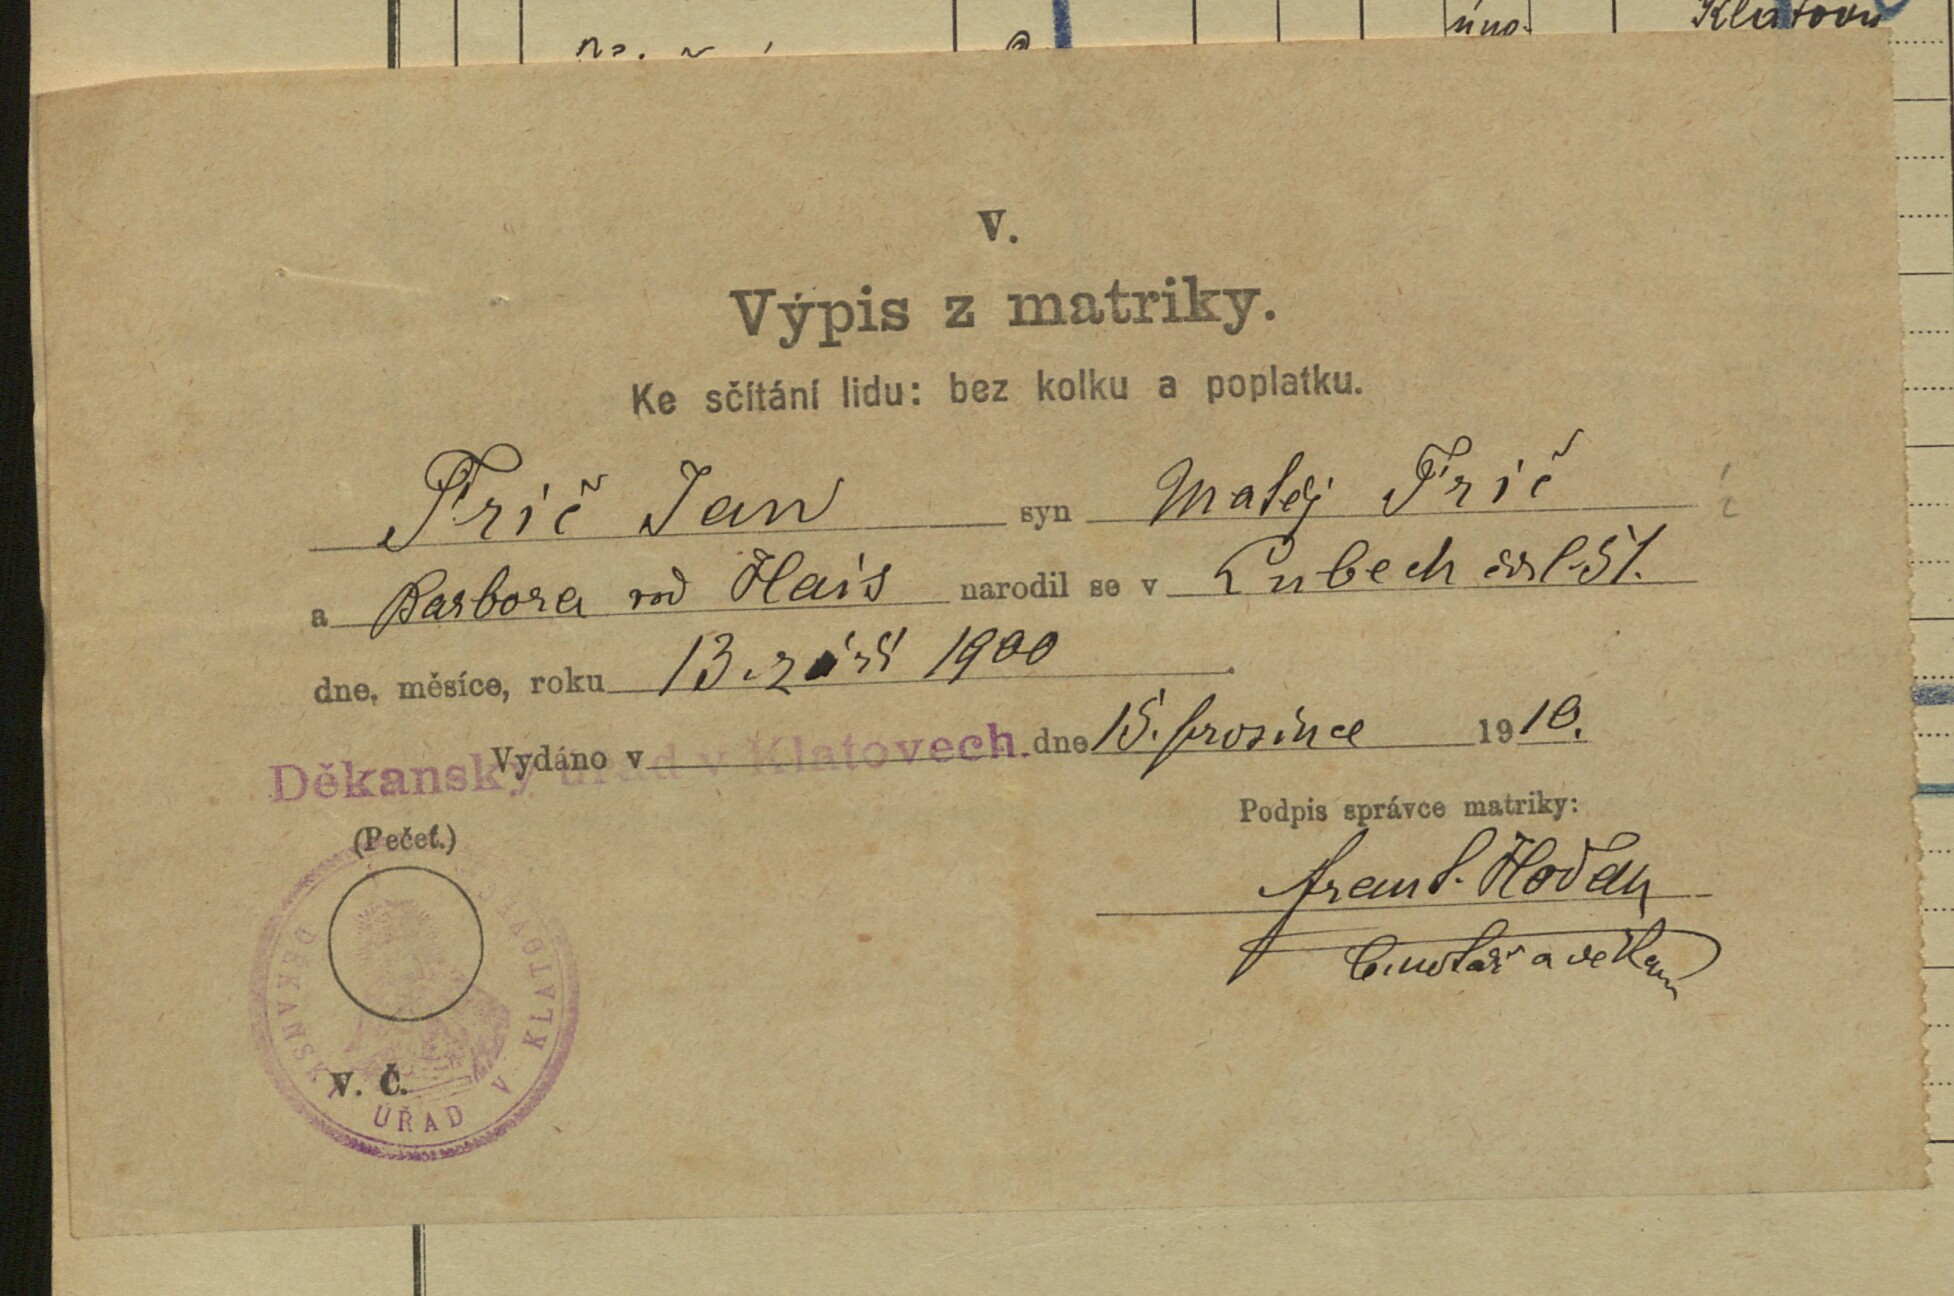 úno.
Klatovy
V.
Výpis z matriky.
Ke sčítání lidu: bez kolku a poplatku.
Frič Jan syn Matěj Frič
a Barbora rod Hais narodil se v Lubech čís 51.
dne, měsíce, roku 13. září 1900.
Vydáno v Děkanský úřad v Klatovech. dne 15. prosince 1910.
Podpis správce matriky:
(Pečeť.)
Frant. Hoďan
arciděkan
DĚKANSKÝ ÚŘAD V KLATOVECH
V. Č.